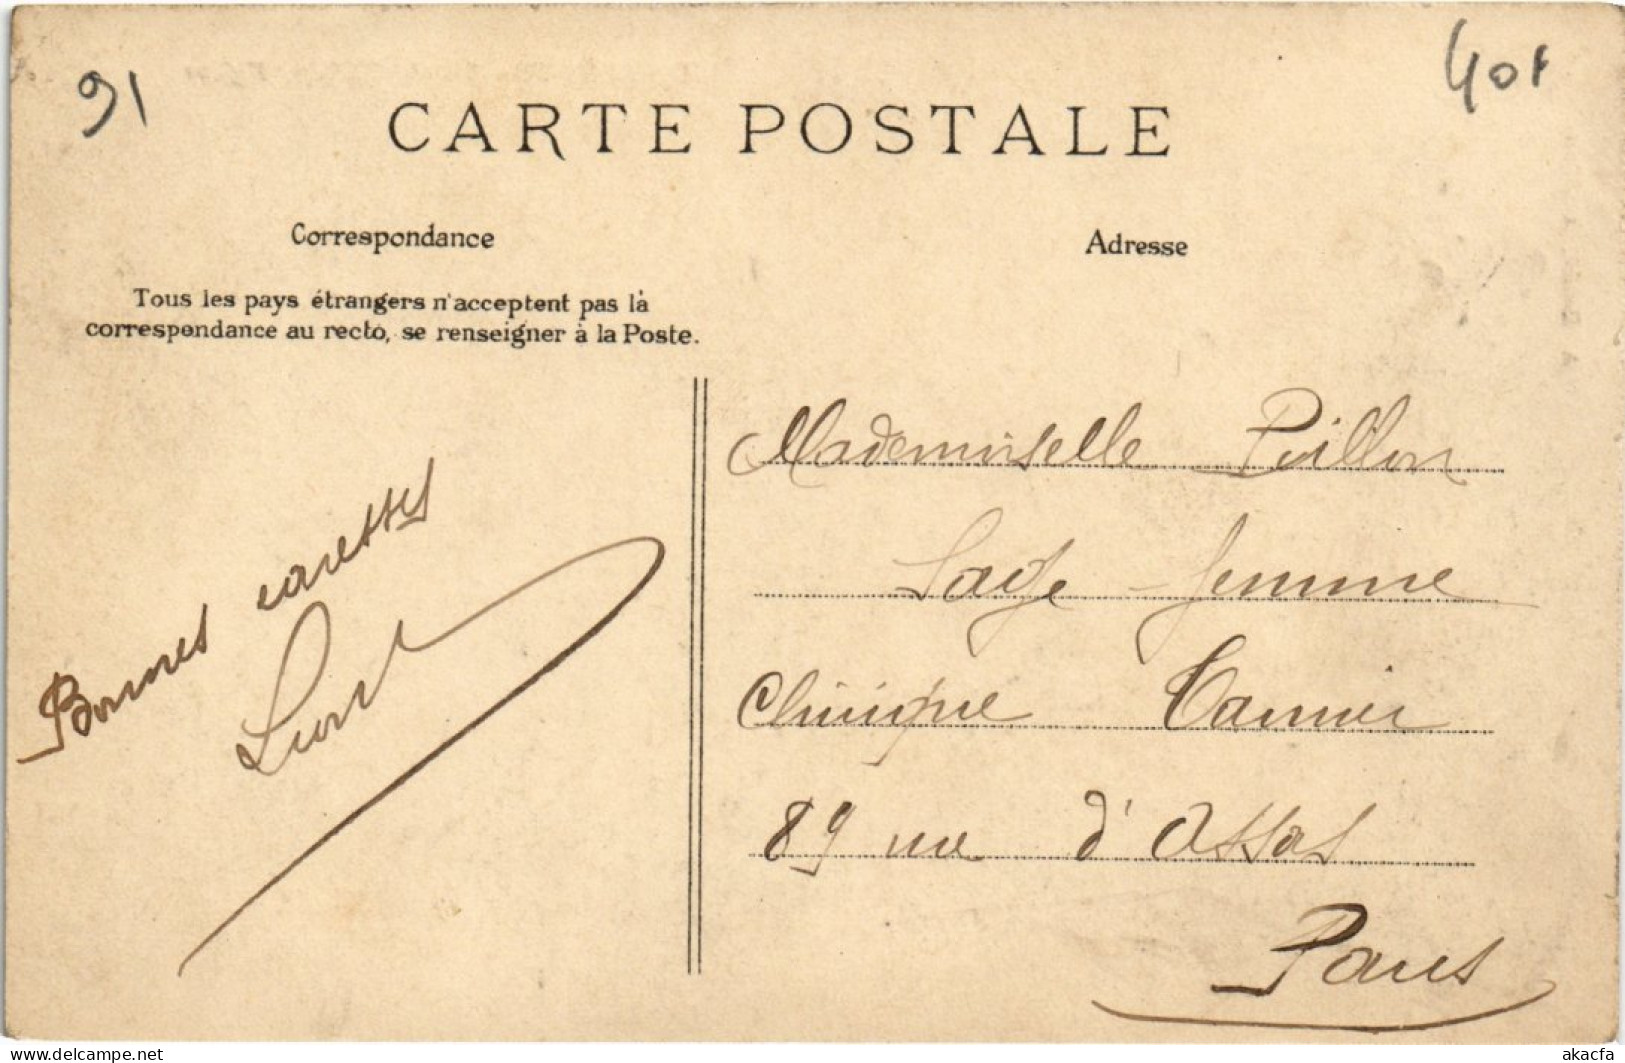 91
40F
CARTE POSTALE
Correspondance
Tous les pays étrangers n'acceptent pas là
correspondance au recto, se renseigner à la Poste.
Bonnes caresses
Adresse
Mademoiselle Pillon
Sage-femme
Clinique Tarnier
89 rue d'Assas
Paris
delcampe.net
akacfa